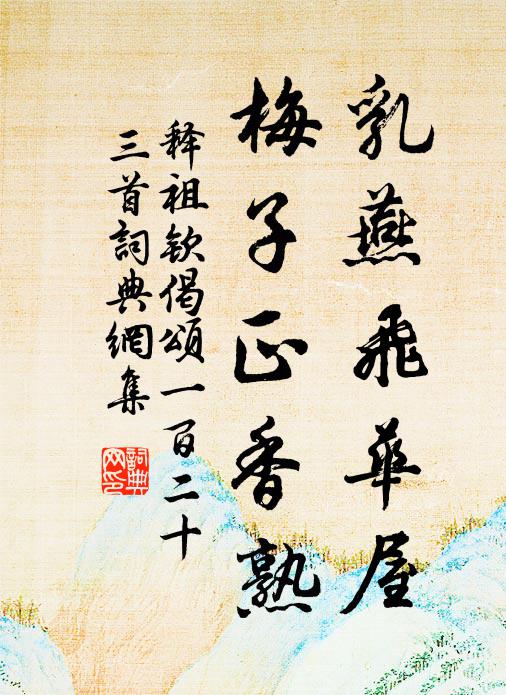 乳燕飛華屋
梅子正香熟
释祖钦偈頌一百二十
三首詞典網集
詞典
网印